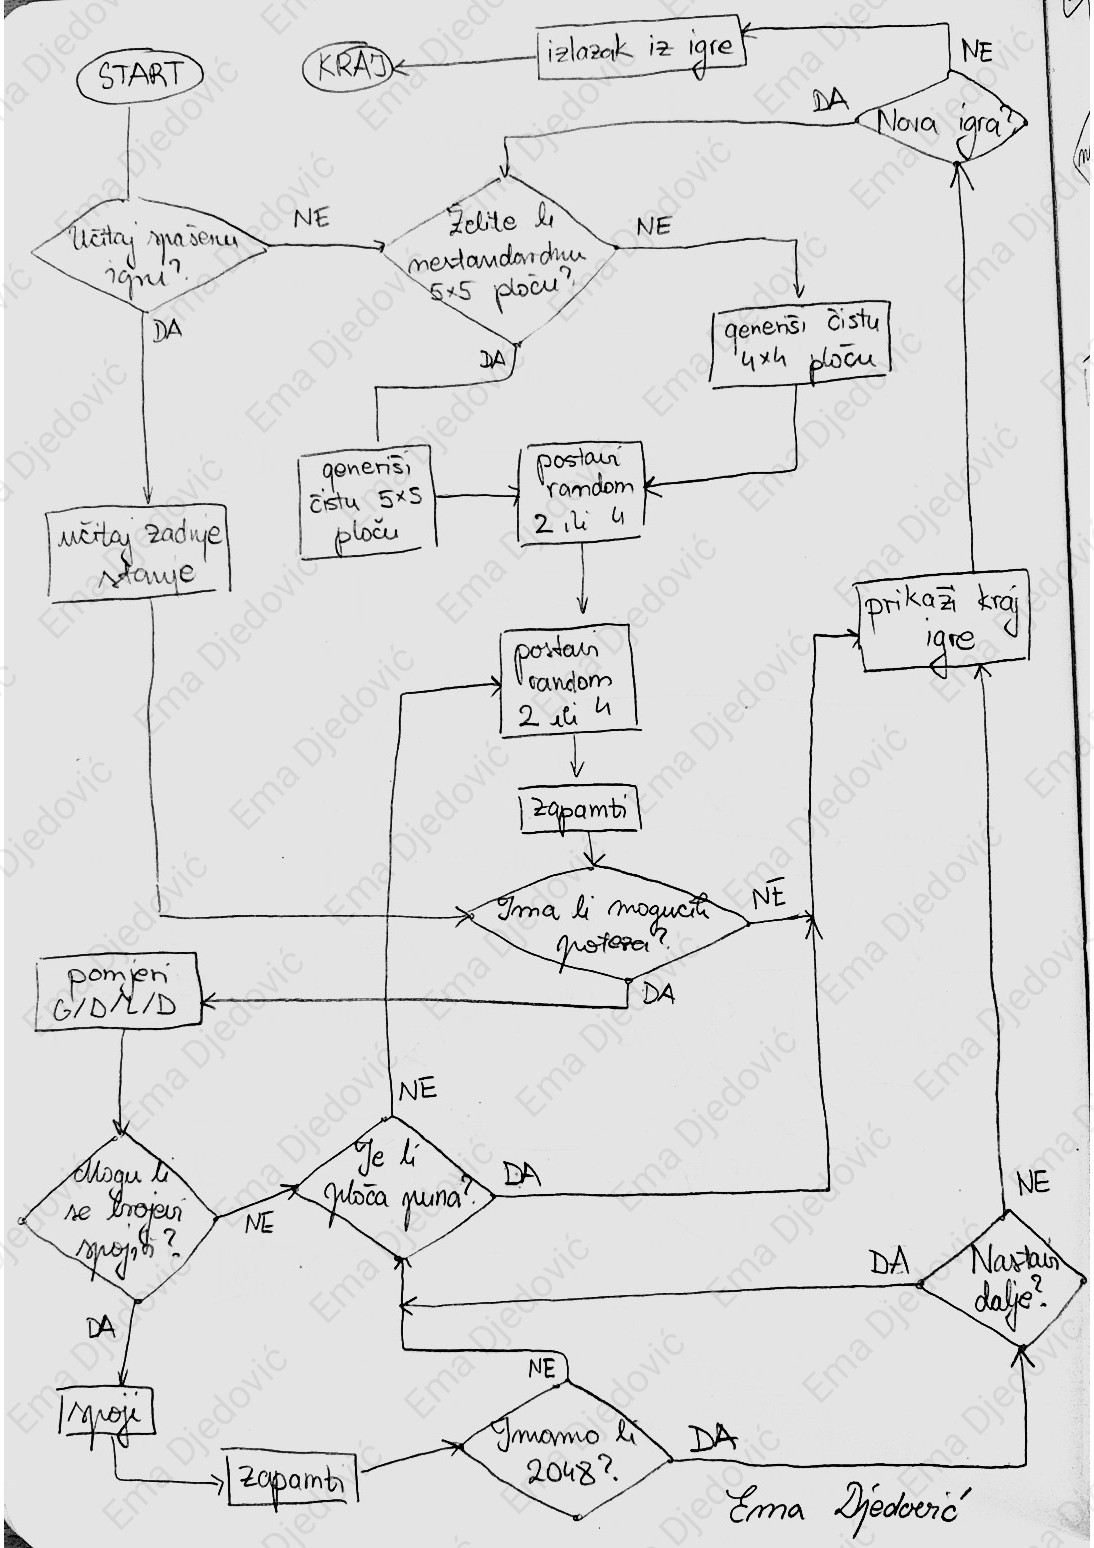 START
KRAJ
izlazak iz igre
NE
DA
Nova igra?
Učitaj spašenu
igru?
NE
DA
Želite li
nestandardnu
5×5 ploču?
NE
DA
generiši čistu
4×4 ploču
generiši
čistu 5×5
ploču
postavi
random
2 ili 4
učitaj zadnje
stanje
postavi
random
2 ili 4
prikaži kraj
igre
zapamti
Ima li mogućih
poteza?
NE
DA
pomjeri
G/D/L/D
NE
Mogu li
se brojevi
spojiti?
NE
DA
Je li
ploča puna?
DA
NE
Nastavi
dalje?
DA
spoji
zapamti
NE
Imamo li
2048?
DA
Ema Djedović